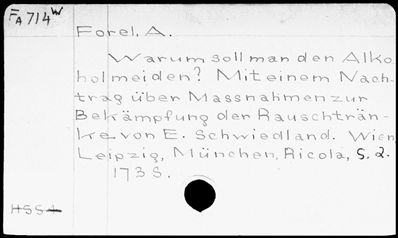 FA 714 W
Forel, A.
Warum soll man den Alko
hol meiden? Mit einem Nach-
trag über Massnahmen zur
Bekämpfung der Rauschträn-
ke von E. Schwiedland. Wien,
Leipzig, München, Ricola, s. a.
173 S.
HSS